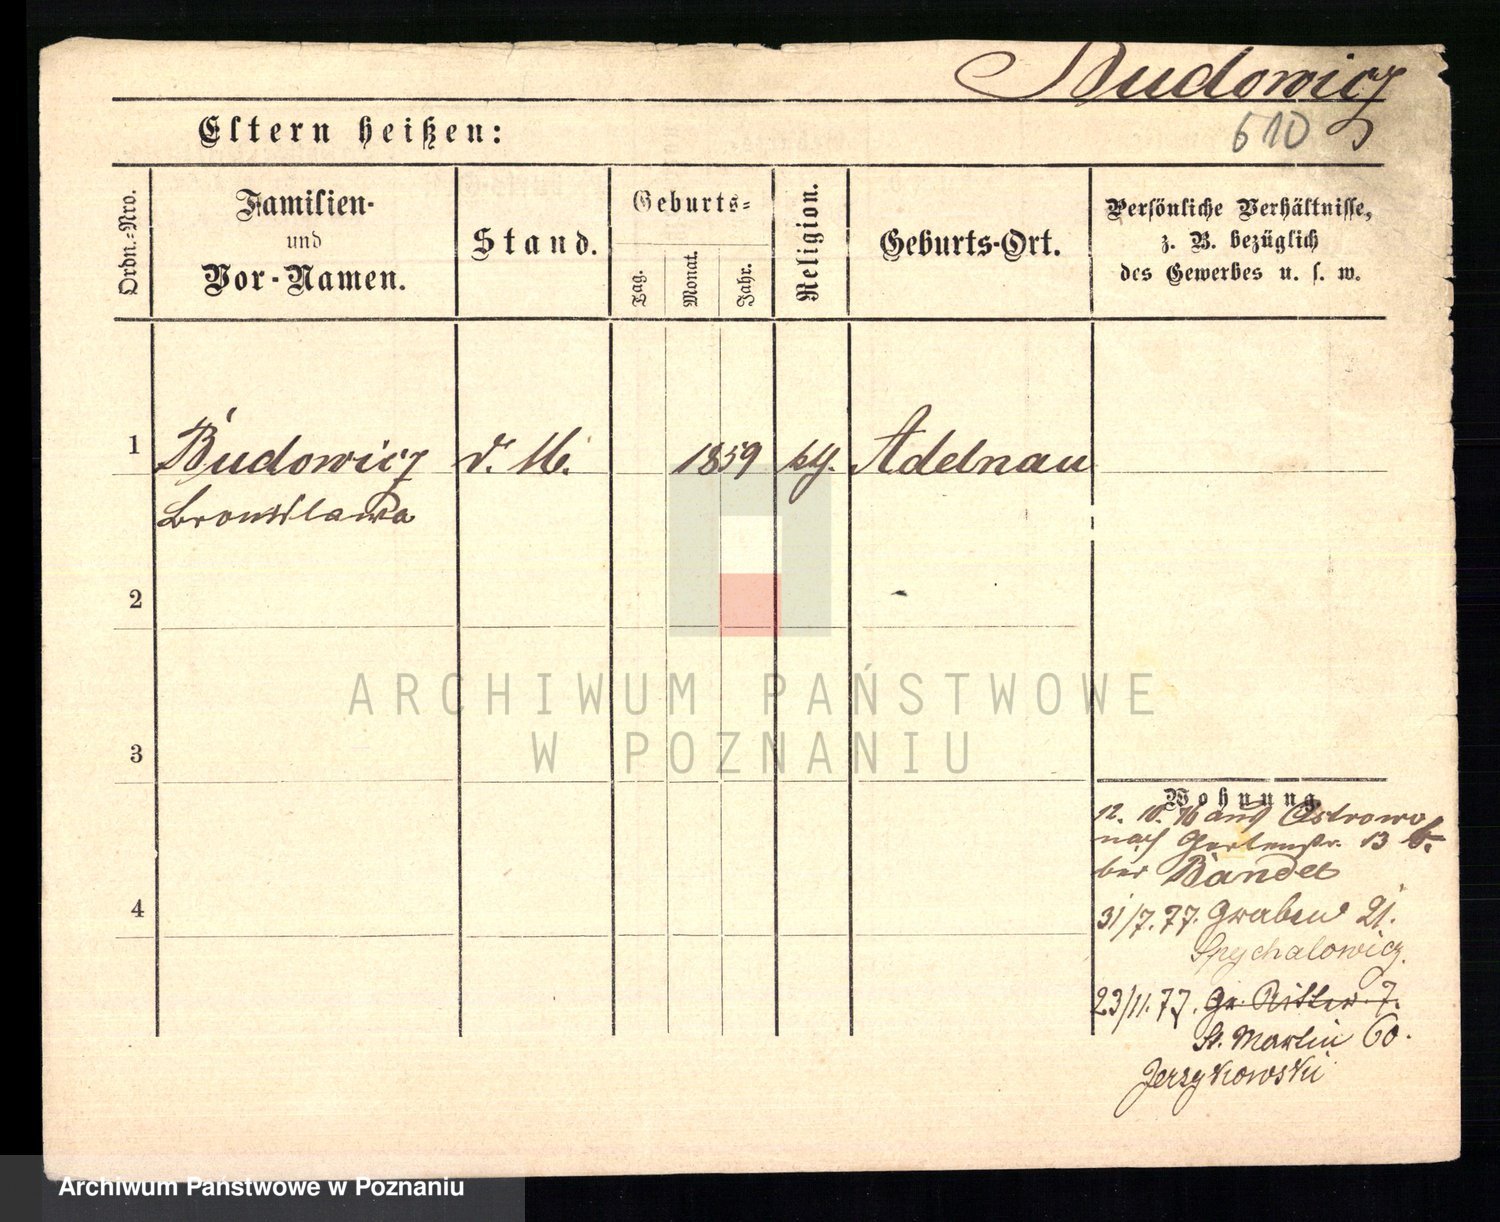 Budowicz
610
Eltern heißen:
Ordn.-Nro.
Familien-
und
Vor-Namen.
Stand.
Geburts-
Tag.
Monat.
Jahr.
Religion.
Geburts-Ort.
Persönliche Verhältnisse,
z. B. bezüglich
des Gewerbes u. s. w.
1 Budowicz d. M. 1859 Adelnau
Bronislawa
2
3
4
Wohnung.
12. 10. 76 aus Ostrowo
nach Gartenstr. 13 b.
bei Bandel
31/7. 77. Graben 21.
Spychalowicz.
23/11. 77. Gr. Ritter. 7.
St. Martin 60.
Jerzykowski
ARCHIWUM PAŃSTWOWE
W POZNANIU
Archiwum Państwowe w Poznaniu